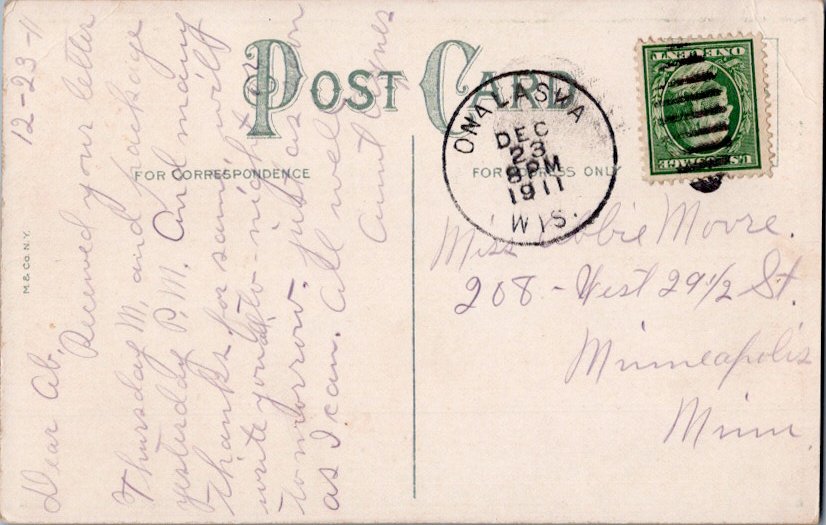 POST CARD
FOR CORRESPONDENCE
FOR ADDRESS ONLY
M. & Co. N.Y.
ONALASKA
DEC
23
8 PM
1911
WIS.
U.S. POSTAGE
ONE CENT
12-23-11
Dear Ab.
Received your letter
Thursday M. and package
yesterday P.M. And many
thanks for same, will
write you to-night or
to-morrow. Just as soon
as I can. All well
aunt Agnes
Miss Abbie Moore.
208 - West 29 1/2 St.
Minneapolis
Minn.